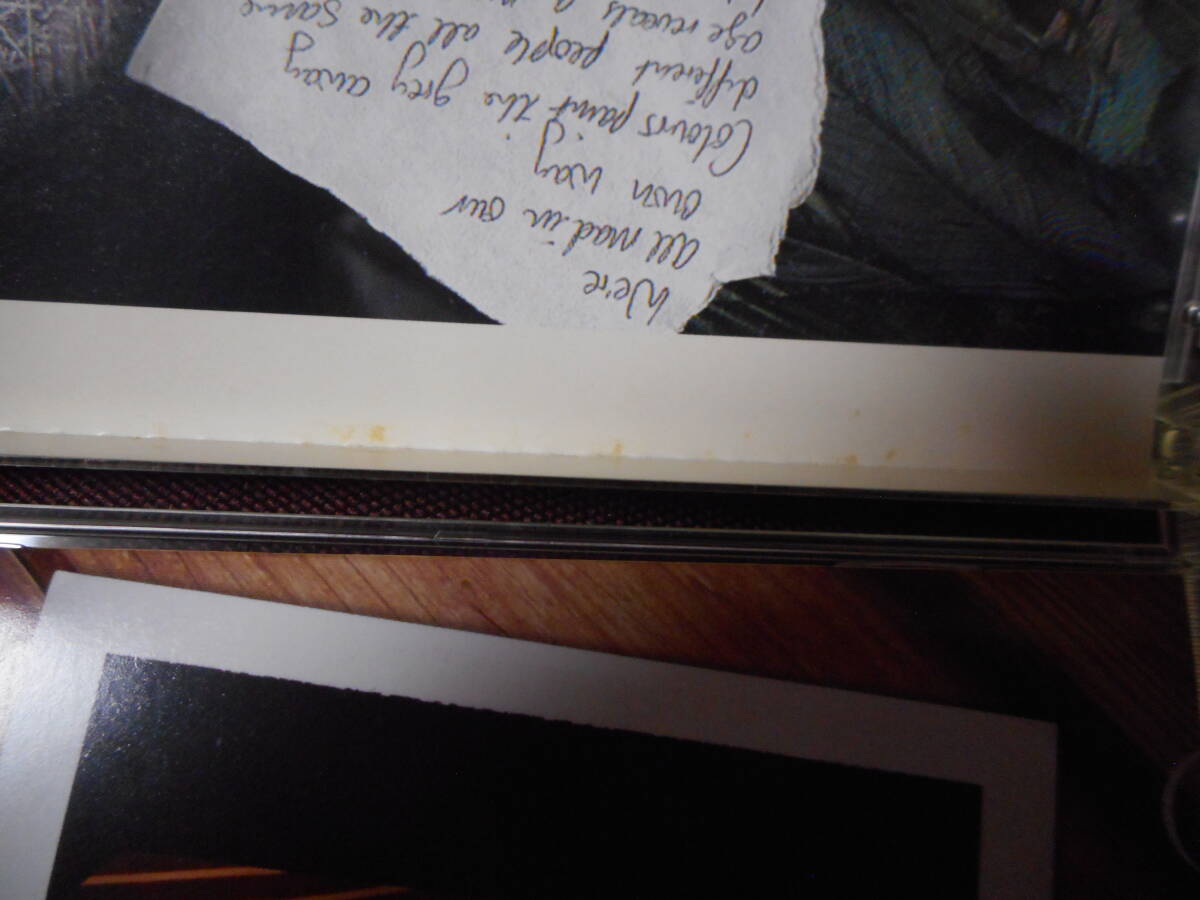 We're
all mad in our
own way
Colours paint the grey away
different people all the same
age reveals a